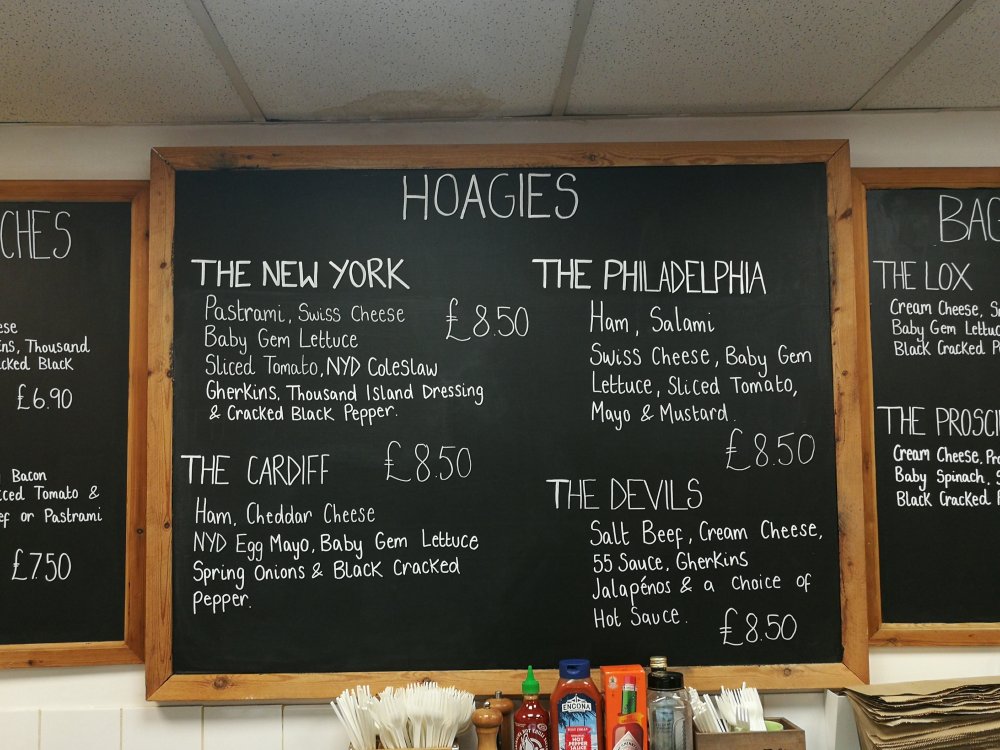 CHES
ese
ns, Thousand
cked Black
£6.90
Bacon
ced Tomato &
ef or Pastrami
£7.50
HOAGIES
THE NEW YORK
Pastrami, Swiss Cheese
£8.50
Baby Gem Lettuce
Sliced Tomato, NYD Coleslaw
Gherkins, Thousand Island Dressing
& Cracked Black Pepper.
THE CARDIFF
£8.50
Ham, Cheddar Cheese
NYD Egg Mayo, Baby Gem Lettuce
Spring Onions & Black Cracked
Pepper.
THE PHILADELPHIA
Ham, Salami
Swiss Cheese, Baby Gem
Lettuce, Sliced Tomato,
Mayo & Mustard
£8.50
THE DEVILS
Salt Beef, Cream Cheese,
55 Sauce, Gherkins
Jalapénos & a choice of
Hot Sauce.
£8.50
BAG
THE LOX
Cream Cheese, S
Baby Gem Lettuc
Black Cracked P
THE PROSCI
Cream Cheese, Pro
Baby Spinach, S
Black Cracked P
ENCONA
HOT
PEPPER
SAUCE